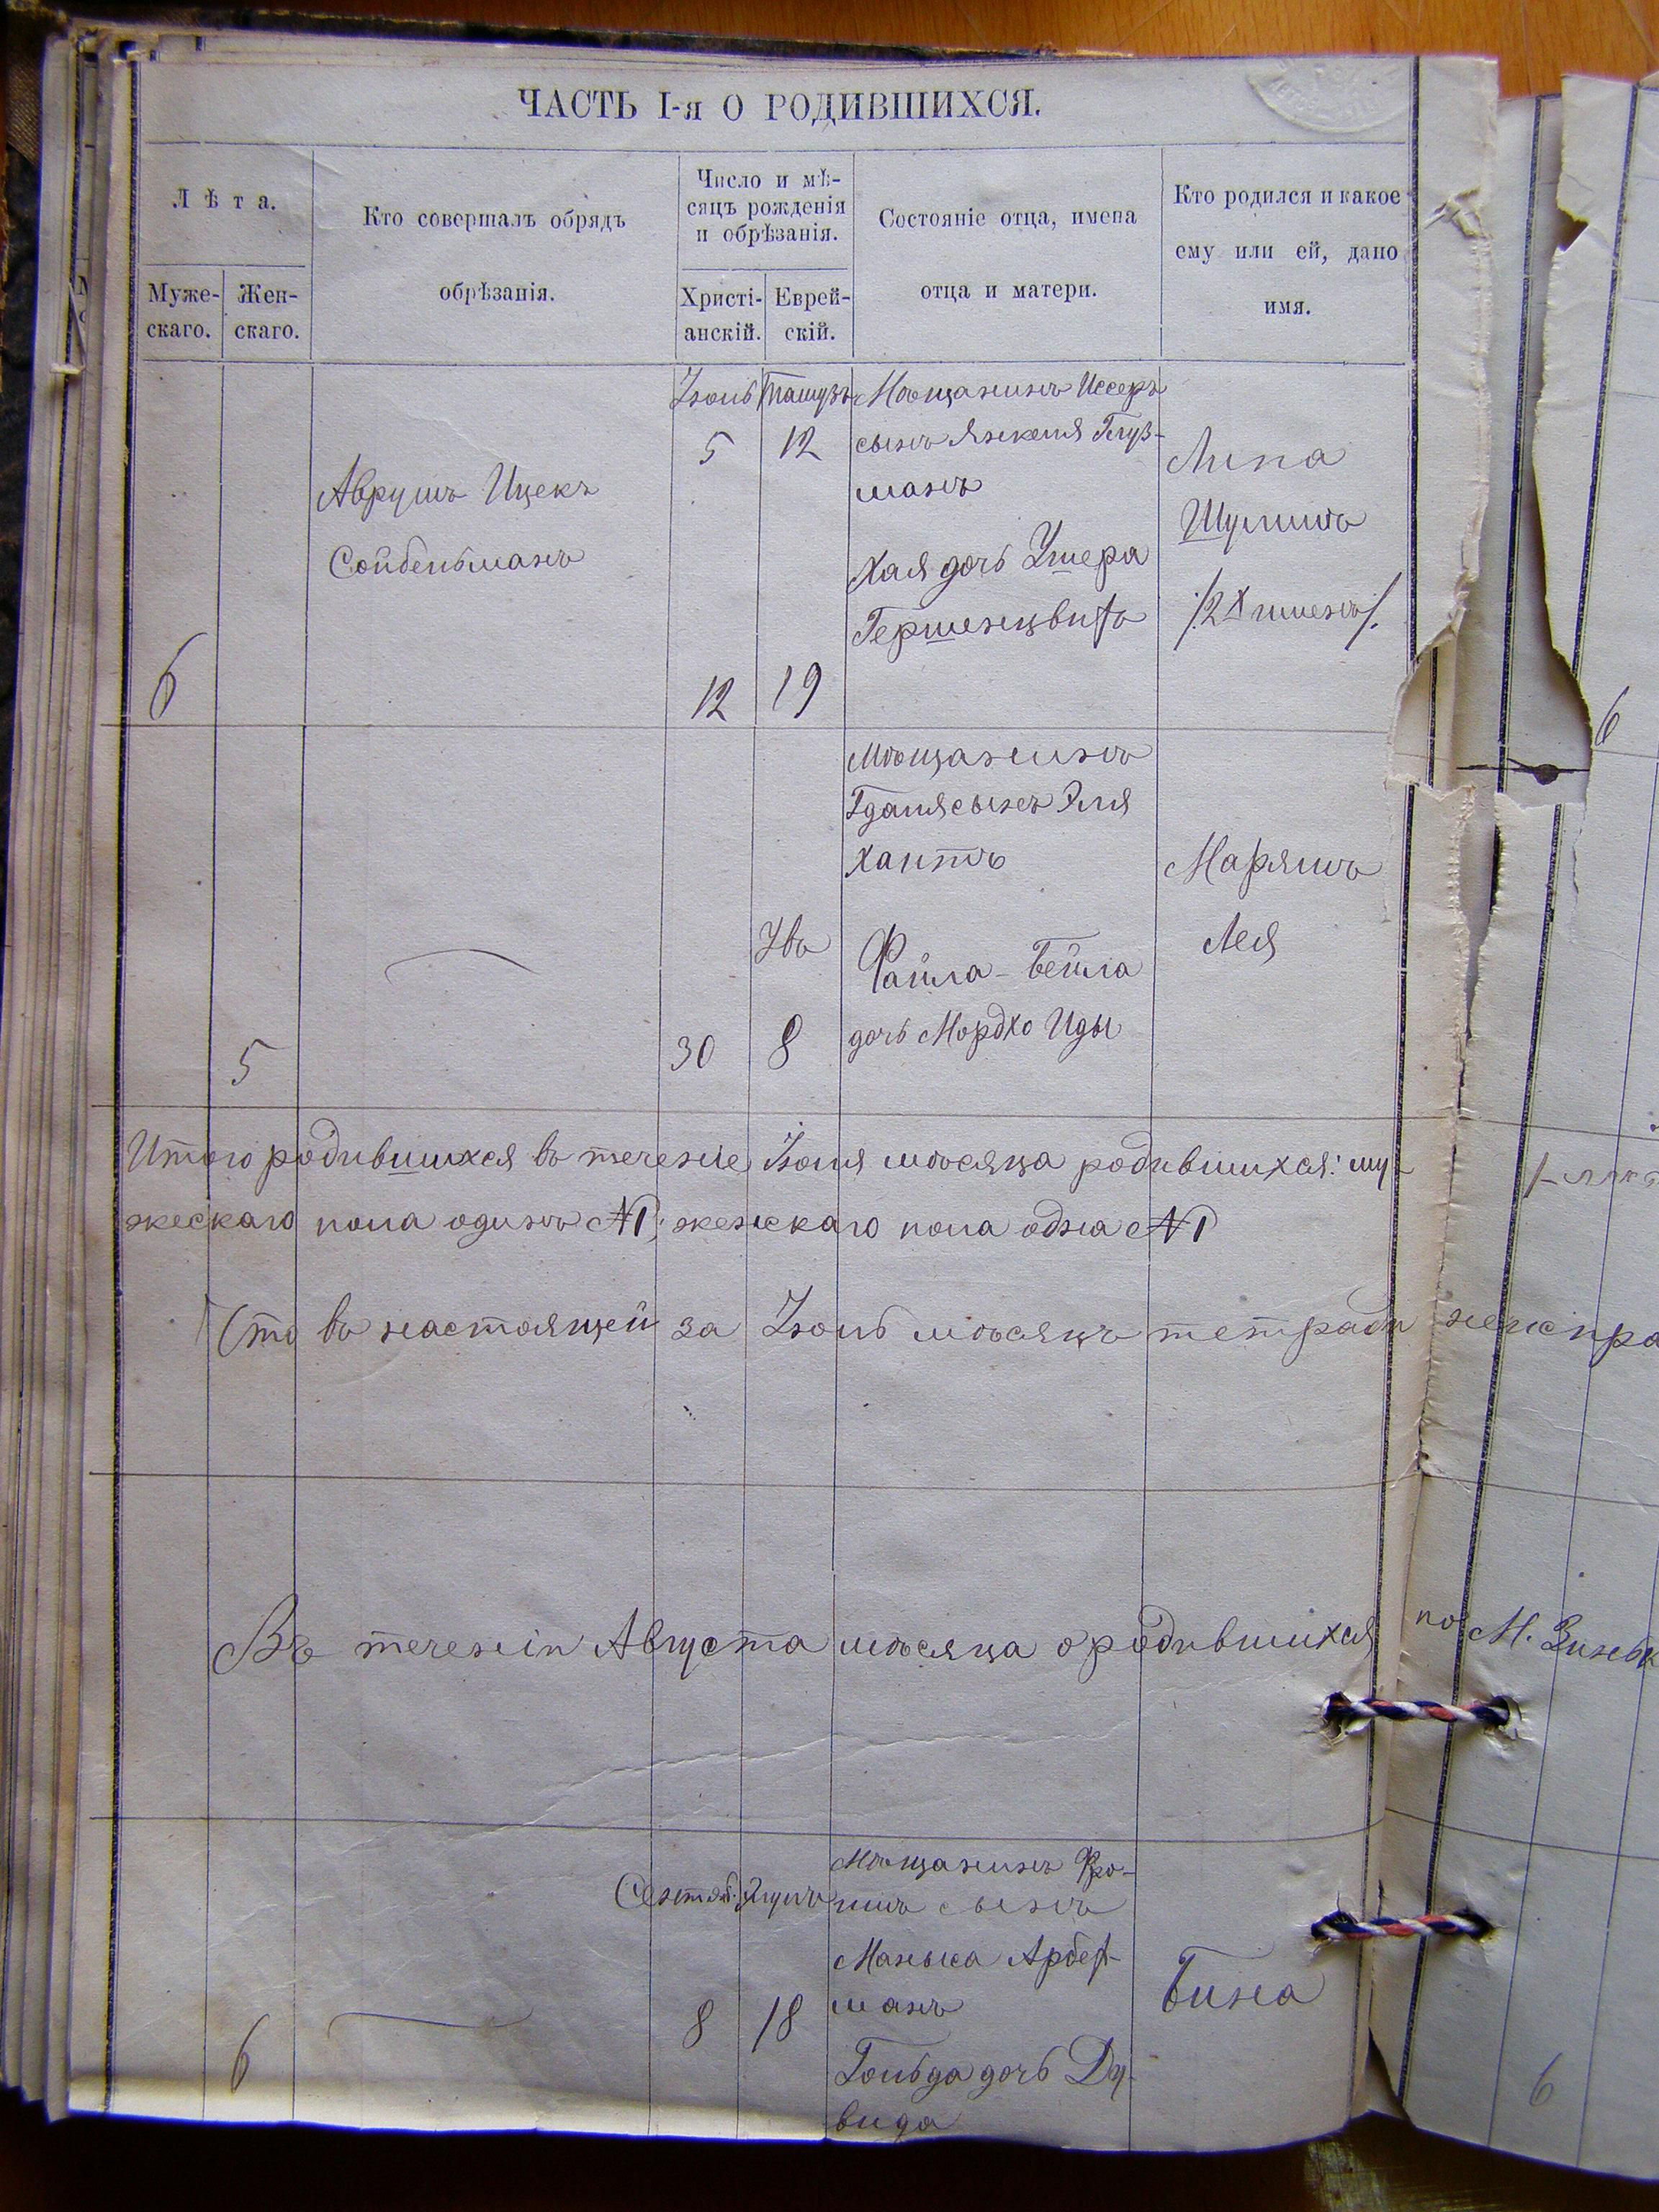 ЧАСТЬ I-я О РОДИВШИХСЯ.
Лѣта.
Мужескаго.
Женскаго.
Кто совершалъ обрядъ
обрѣзанія.
Число и мѣ-
сяцъ рожденія
и обрѣзанія.
Христі-
анскій.
Еврей-
скій.
Состояніе отца, имена
отца и матери.
Кто родился и какое
ему или ей, дано
имя.
6
Аврумъ Ицекъ
Сойбельманъ
Іюль
5
12
Тамузъ
12
19
Мѣщанинъ Иссеръ
сынъ Янкеля Глуз-
манъ
Хая дочь Ушера
Липа
Шулимъ
5
30
Увъ
8
Мѣщанинъ
Гдаля сынъ Эля
Хаитъ
Файла-Бейла
дочь Мордхо Иды
Марямъ
Лея
Итого родившихся въ теченіе Іюля мѣсяца родившихся: му-
жескаго пола одинъ №1, женскаго пола одна №1
Что въ настоящей за Іюль мѣсяцъ тетради неиспра
Въ теченіи Августа мѣсяца о родившихся по М. Зиньк
6
Сентяб.
8
Элулъ
18
Мѣщанинъ Фро-
имъ сынъ
Манька
манъ
Гольда дочь Ду-
вида
Бина
6
6